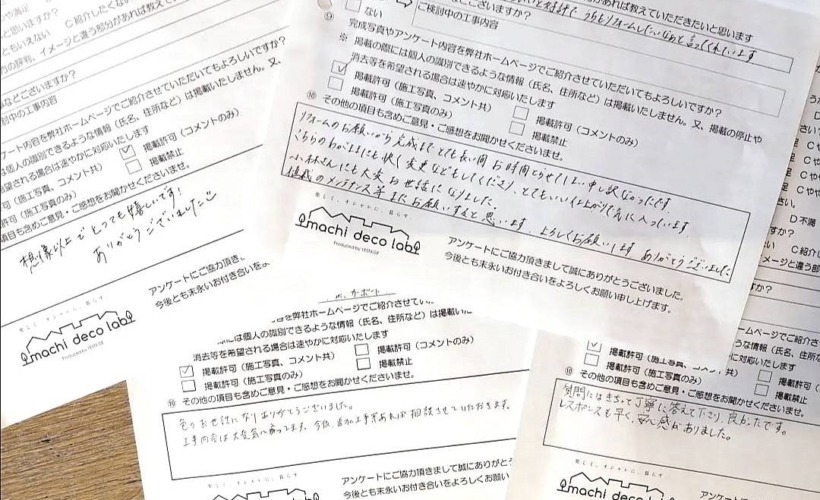 ない
ご検討中の工事内容
完成写真やアンケート内容を弊社ホームページでご紹介させていただいてもよろしいですか?
※ 掲載の際には個人の識別できるような情報(氏名、住所など)は掲載いたしません。又、掲載の停止や
消去等を希望される場合は速やかに対応いたします
掲載許可(施工写真、コメント共)
掲載許可(コメントのみ)
掲載許可(施工写真のみ)
掲載禁止
⑯ その他の項目も含めご意見・ご感想をお聞かせくださいませ。
リフォームのお願いから完成まで とても長い間 お時間とらせてしまい申し訳なかったです。
こちらのわがままにも快く変更などもしてくださり、とてもいい仕上がりで気に入っています
小林さんにも大変お世話になりました。
後のメンテナンス等またお願いすると思います。よろしくお願いします ありがとうございました
楽しく、オシャレに、暮らす
machi deco labo
アンケートにご協力頂きまして誠にありがとうございました。
今後とも末永いお付き合いをよろしくお願い申し上げます。
ご紹介させていただいてもよろしいですか?
(氏名、住所など)は掲載いたしません。又、
は速やかに対応いたします
掲載許可(コメントのみ)
掲載禁止
その他の項目も含めご意見・ご感想をお聞かせくださいませ。
想像以上でとっても嬉しいです!
ありがとうございました
楽しく、オシャレに、暮らす
machi deco labo
アンケートにご協力頂きま
今後とも末永いお付き合いをよ
サポート
を弊社ホームページでご紹介させてい
は個人の識別できるような情報(氏名、住所など)は掲載い
消去等を希望される場合は速やかに対応いたします
掲載許可(施工写真、コメント共)
掲載許可(コメントのみ)
掲載許可(施工写真のみ)
掲載禁止
⑯ その他の項目も含めご意見・ご感想をお聞かせくださいませ。
色々お世話になりありがとうございました。
工事内容は大変気に入ってます。今後、追加工事等あれば相談させていただきます。
楽しく、オシャレに、暮らす
アンケートにご協力頂きまして誠にありがと
今後とも末永いお付き合いをよろしくお願い
掲載許可(施工写真のみ)
掲載禁止
⑯ その他の項目も含めご意見・ご感想をお聞かせくださいませ。
質問にはきちっと丁寧に答えて下さり、良かったです。
レスポンスも早く、安心感がありました。
楽しく、オシャレに、暮らす
machi deco labo
アンケートにご協力頂きまして
今後とも末永いお付き合いを